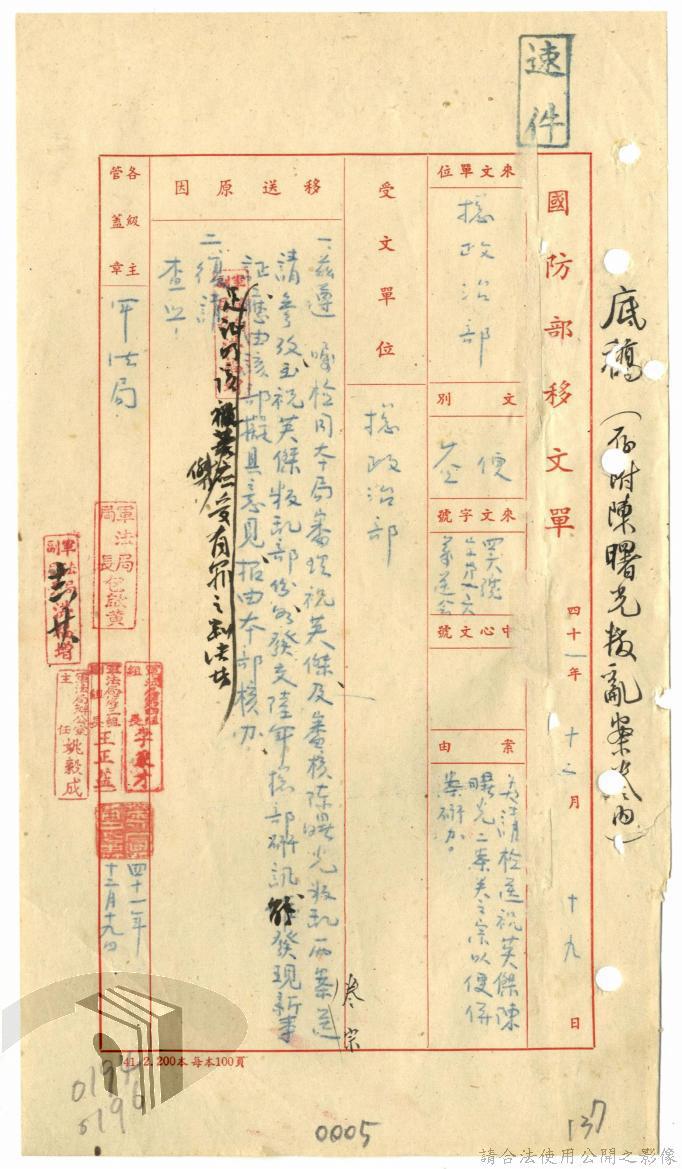 速件
底稿（存附陳曙光叛亂案卷內）
國防部移文單
四十一年十二月十九日
來文單位
總政治部
文別
便
來文字號
中心文號
案由
為請檢送祝英傑陳
曙光二案共之宗以便併
案研办。
受文單位
總政治部
移送原因
一、茲遵囑檢同本局審理祝英傑及審核陳曙光叛亂兩案送
卷宗
請參攷至祝英傑叛亂部份如發交陸年總部研訊能發現新事
証應由該部擬具意見报由本部核办
足沖明該被告應受有罪之判決者
傑
二、復請
查照！
各級主管蓋章
軍法局
軍法局局長包啟黃
軍法局
副
組長李
軍法局第二組
副組長王正
軍法局辦公室
主任姚毅成
四十一年
十二月十九日
41.2.200本每本100頁
0194
0196
0005
137
請合法使用公開之影像